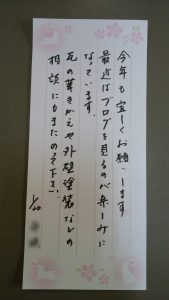 今年も宜しくお願いします
最近はブログを見るのが楽しみに
なっています。
瓦の葺きかえや外壁塗装などの
相談にもまたのって下さい。
1/20